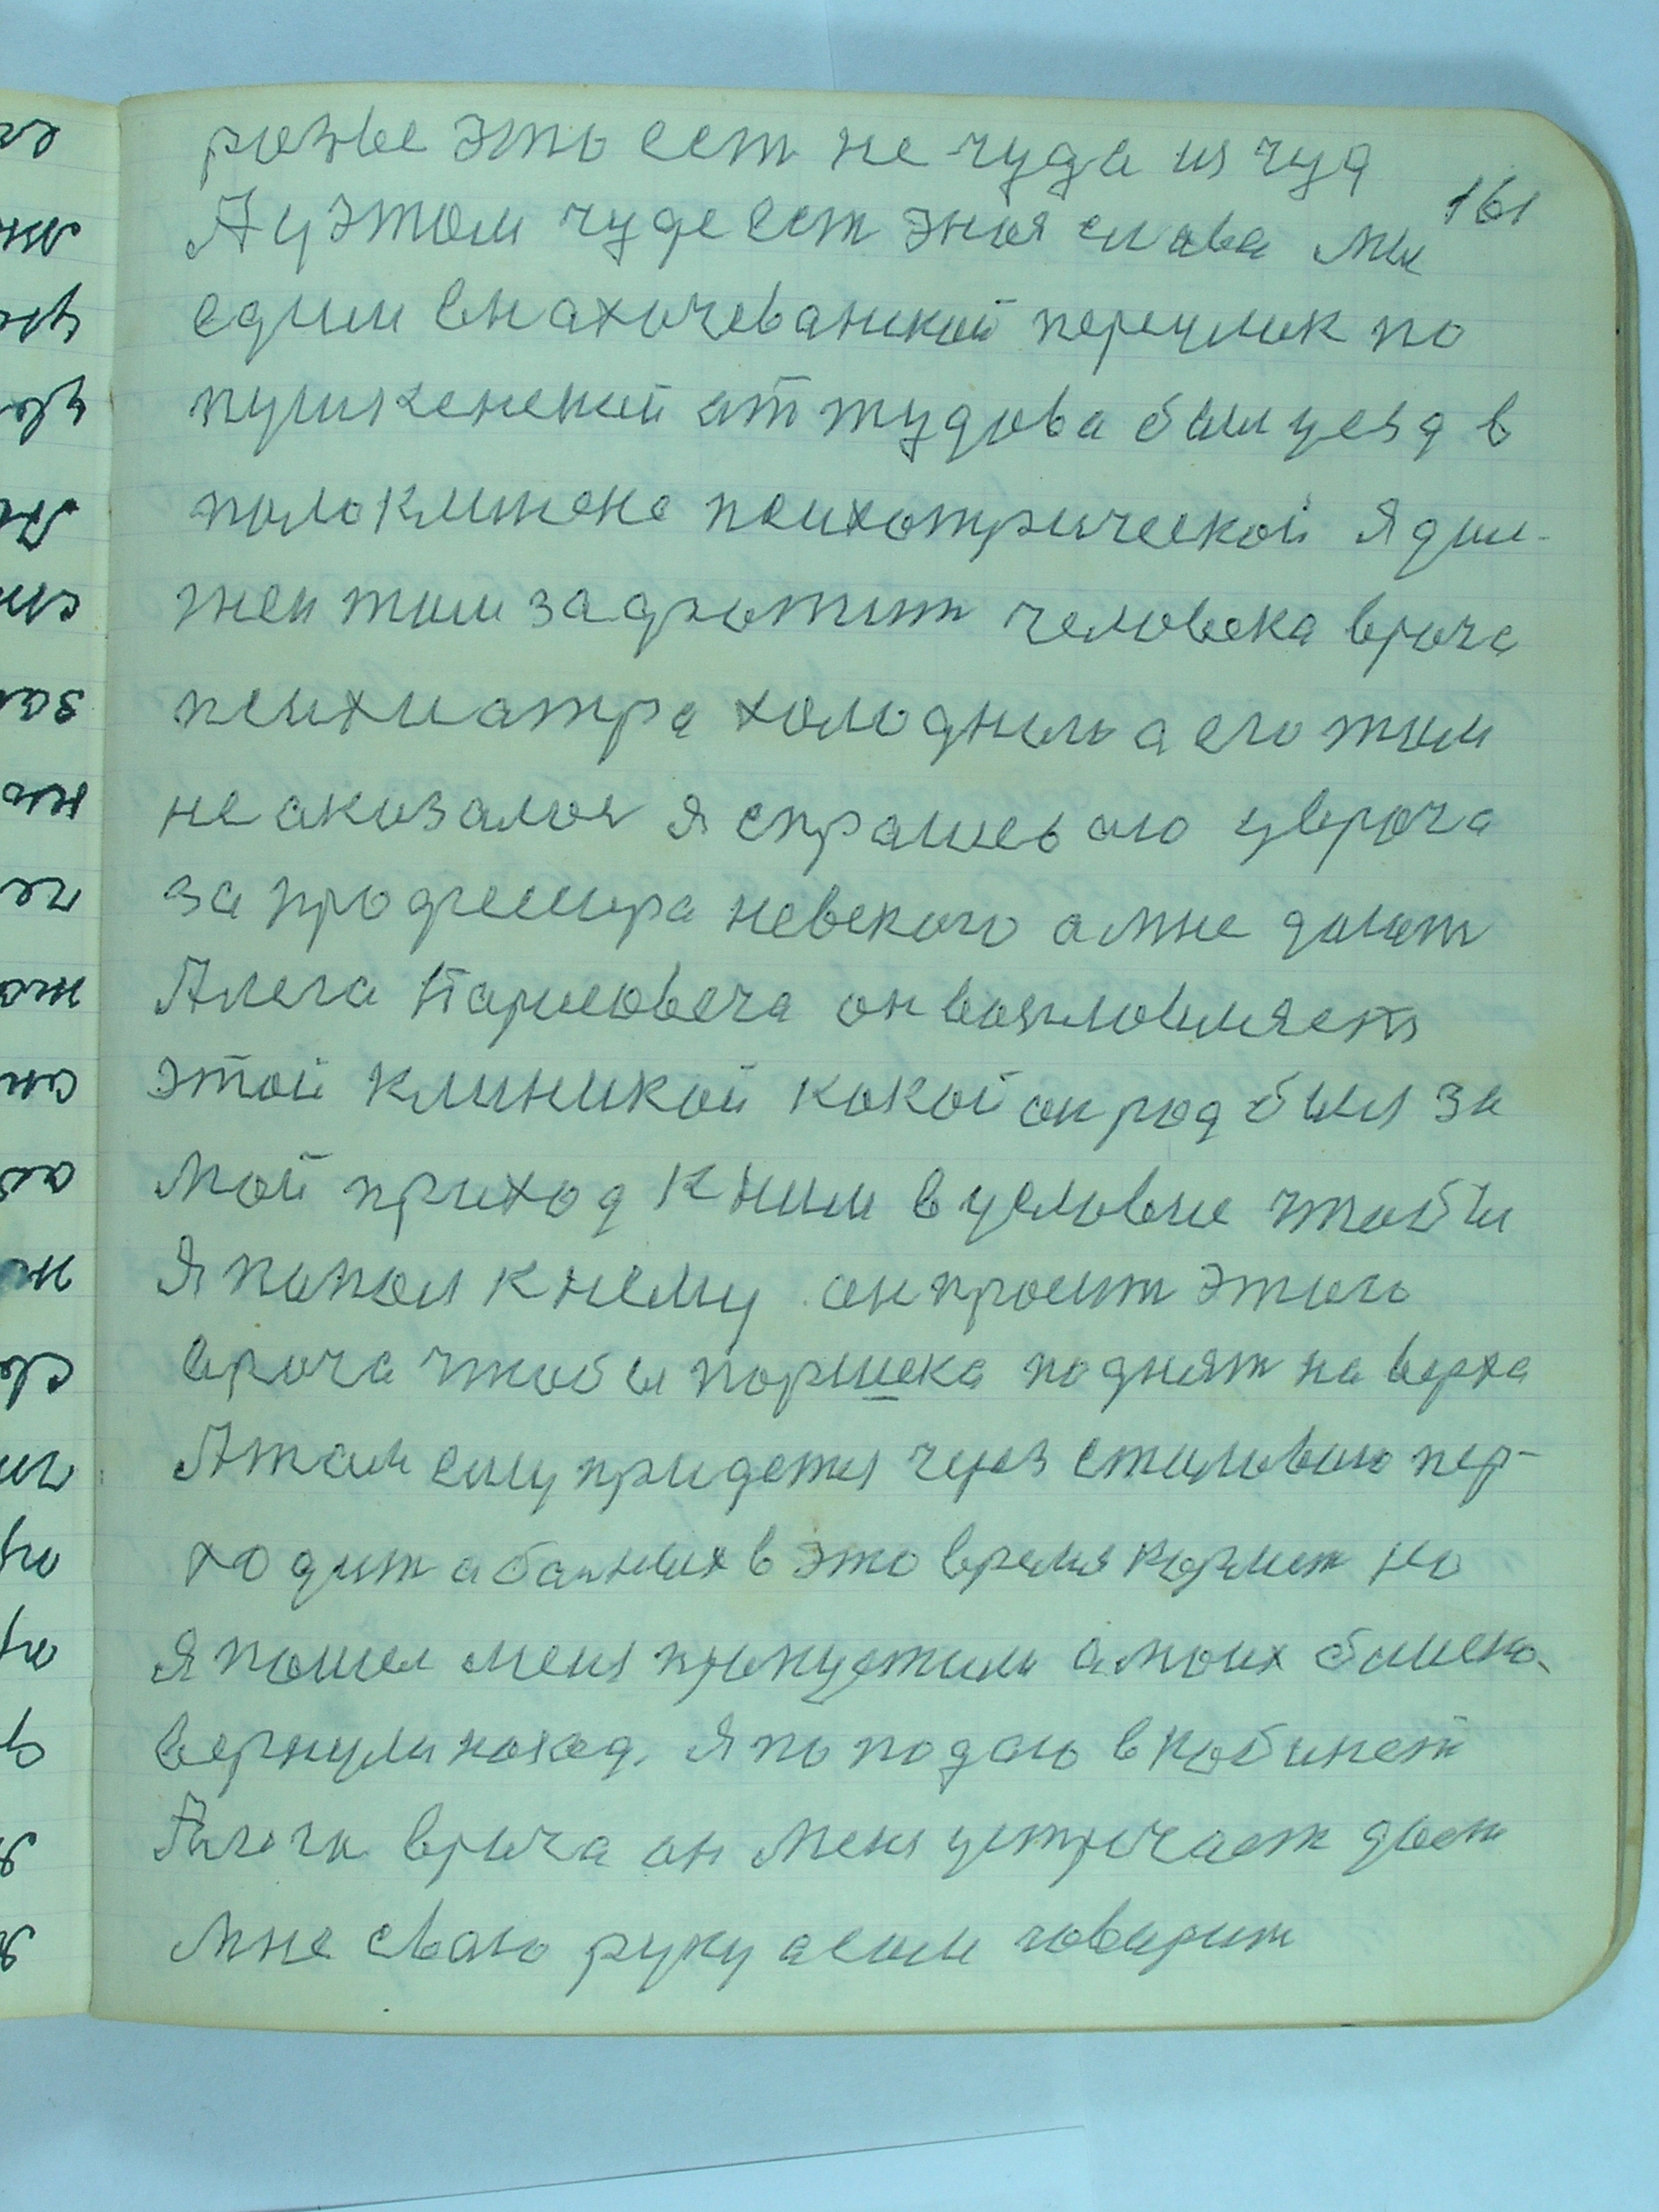 это ест не чуда из чуд
161
А у этом чуде ест зноя слава Мы
едим внахичеванский переулик по
пушкенский аттудова был уезд в
поло клинеке психотрической я дил-
жен там захватит человека врача
психиатра холодныло а его там
не аказалоя я спрашеваю у врача
за профессора невского а мне дают
Алега Парисовеча он возгловляет
этой клиникой какой он рад был за
Мой приход к ним в условие чтобы
Я попал к нему он просит этого
врача чтобы поршека поднят на верха
А там ему придетя через столовою пер-
ходит а больных в это время кормят но
я пошел меня пропустили а моих
вернули назад. я поподаю в кабинет
Алега врача он меня устричает дает
Мне сваю руку а сам говарит